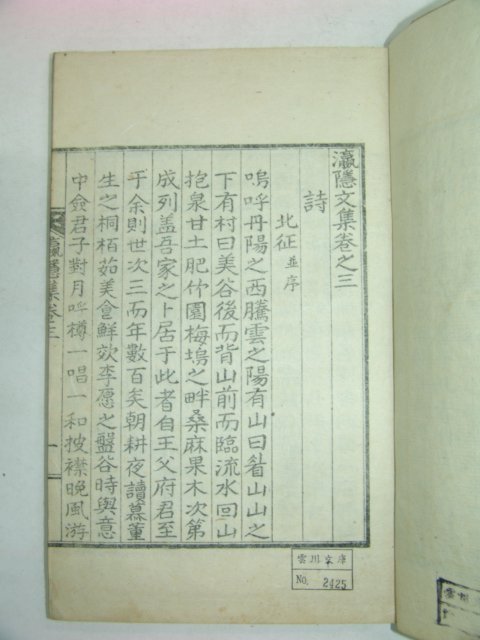 瀛隱文集卷之三
詩
北征 並序
嗚呼丹陽之西騰雲之陽有山曰眉山山之
下有村曰美谷後而背山前而臨流水回山
抱泉甘土肥竹園梅塢之畔桑麻果木次第
成列盖吾家之卜居于此者自王父府君至
于余則世次三而年數百矣朝耕夜讀慕董
生之桐栢茹美食鮮效李愿之盤谷時與意
中僉君子對月呼樽一唱一和披襟晩風游
瀛隱集卷之三
一
雲川文庫
No. 2425